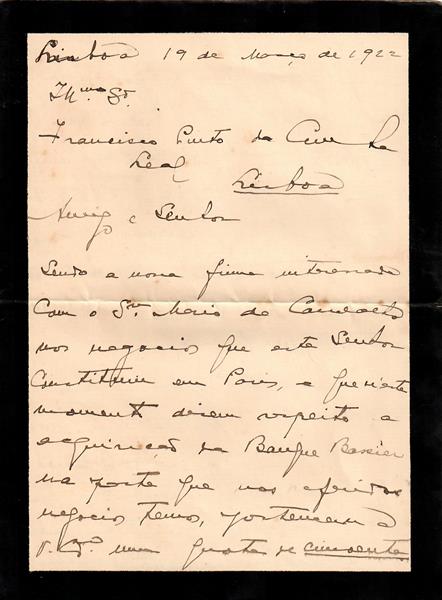 Lisboa 19 de Março de 1922
Illmo Sr.
Francisco Pinto da Cunha
Leal
Lisboa
Amigo e Senhor
Sendo a nossa firma interessada
com o Sr. Mario de Carvalho
nos negocios que este Senhor
constituiu em Paris, e que n'este
momento dizem respeito a
acquisição da Banque
na parte que nos referidos
negocios temos, pertencerá a
V. Exa. uma quota de cincoenta